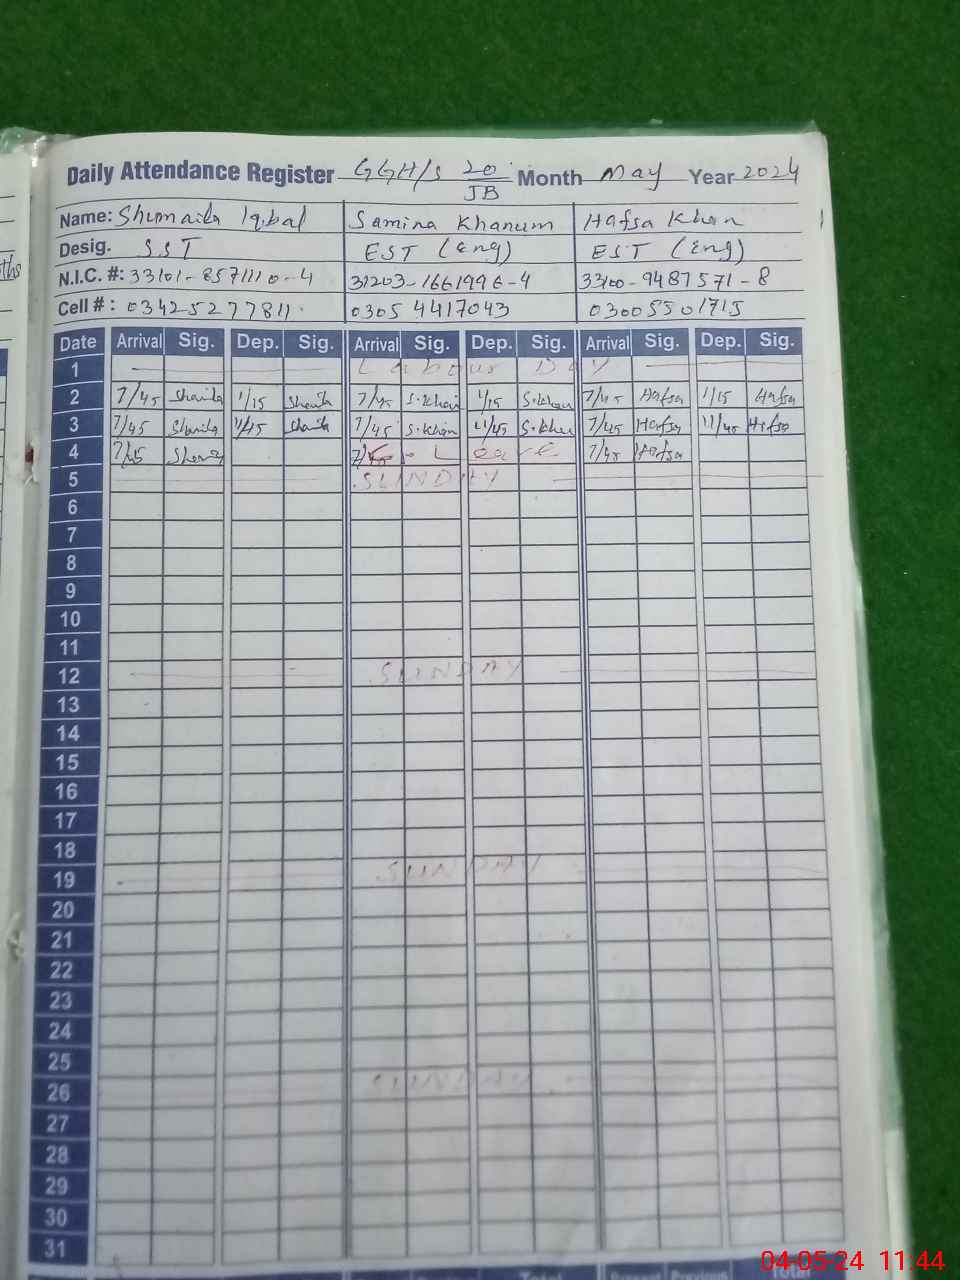 ths
Daily Attendance Register GGH/S 20/JB Month May Year 2024
Name: Shumaila Iqbal Samina Khanum Hafsa Khan
Desig. SST EST (Eng) EST (Eng)
N.I.C. #: 33101-8571110-4 31203-1661996-4 33100-9487571-8
Cell #: 03425277811 0305 4417043 03005501715
Date Arrival Sig. Dep. Sig. Arrival Sig. Dep. Sig. Arrival Sig. Dep. Sig.
1 Labour Day
2 7/45 Shamila 1/15 Shamila 7/45 S.Khan 1/15 S.Khan 7/45 Hafsa 1/15 Hafsa
3 7/45 Shamila 11/45 Shamila 7/45 S.Khan 11/45 S.Khan 7/45 Hafsa 11/45 Hafsa
4 7/45 7/45 Leave 7/45 Hafsa
5 SUNDAY
6
7
8
9
10
11
12 SUNDAY
13
14
15
16
17
18
19 SUNDAY
20
21
22
23
24
25
26 SUNDAY
27
28
29
30
31
Total
04-05-24 11:44